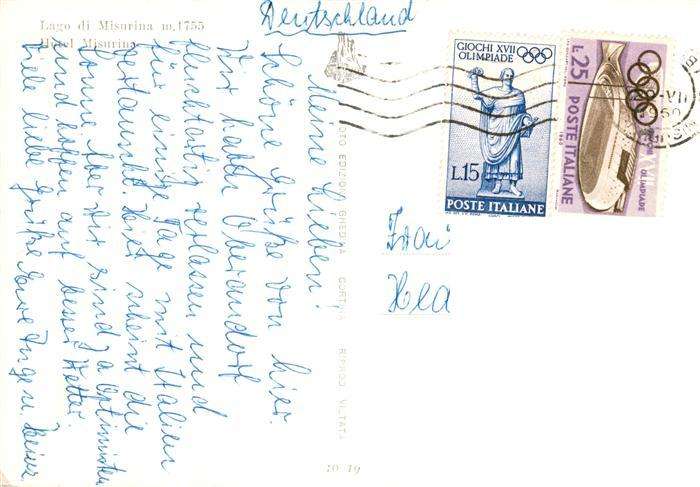 Lago di Misurina m. 1755
Hotel Misurina
Deutschland
Meine Lieben!
Schöne Grüße von hier.
Wir haben Oberaudorf
fluchtartig verlassen und
für einige Tage mit Italien
vertauscht. Hier scheint die
Sonne. Aber wir sind ja Optimisten
und hoffen auf besser Wetter.
Viele liebe Grüße Eure Inge u. Heinz
FOTO EDIZIONI GHEDINA CORTINA RIPROD. VIETATA
20-19
GIOCHI XVII
OLIMPIADE
L.15
POSTE ITALIANE
L.25
POSTE ITALIANE
1960
OLIMPIADE
VII
1960
Frau